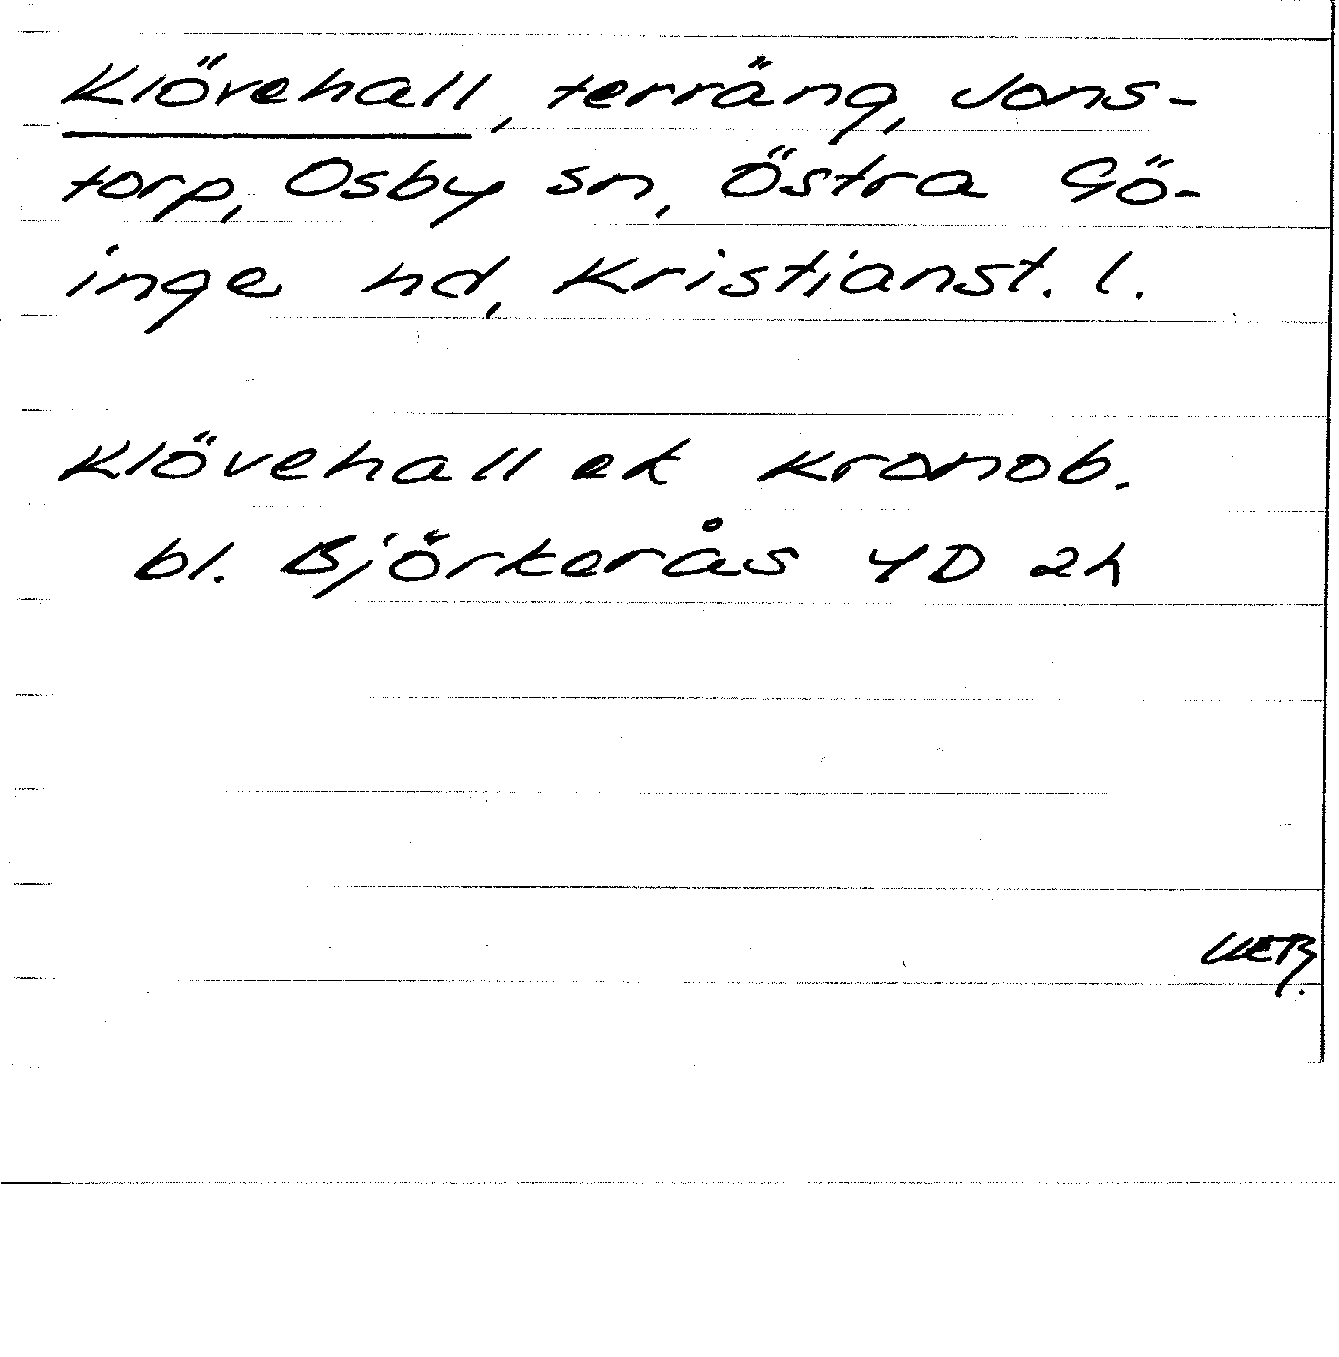 Klövehall, terräng, Jons-
torp, Osby sn, Östra Gö-
inge hd, Kristianst. l.
Klövehall ek Kronob.
bl. Björkerås 4D 2h